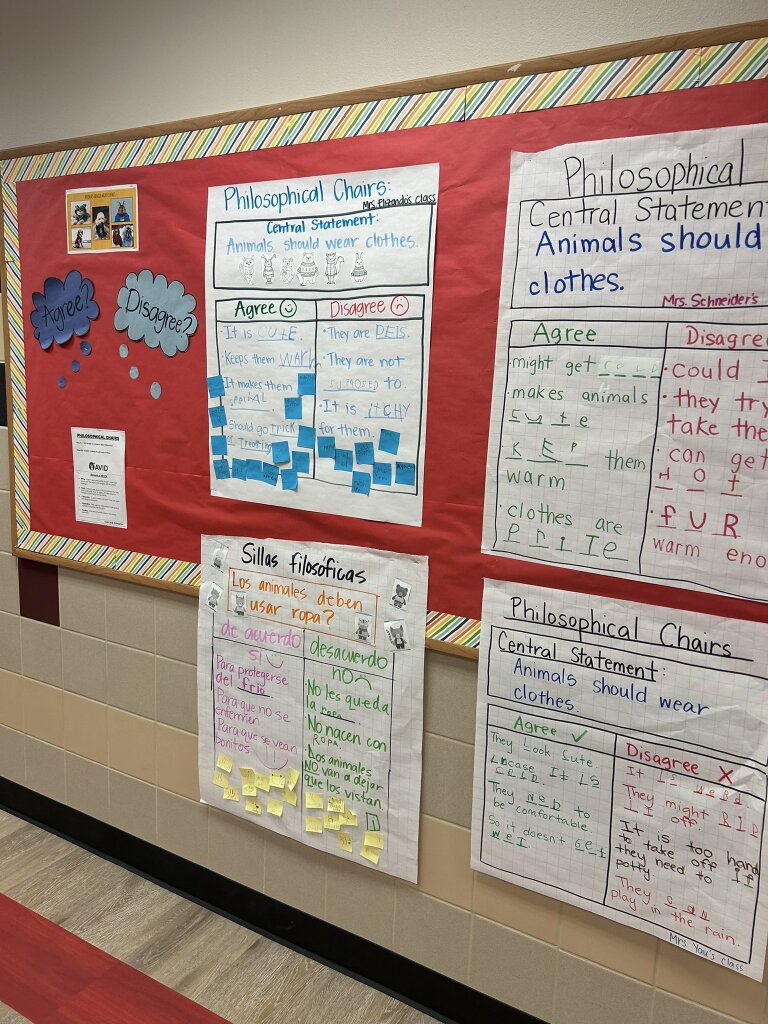 Agree?
Disagree?
PHILOSOPHICAL CHAIRS
AVID
Philosophical Chairs:
Mrs. class
Central Statement:
Animals should wear clothes.
Agree
It is CUTE.
Keeps them warm
It makes them
Should go trick
or
Disagree
They are
They are not
supposed to.
It is itCHY
for them.
Philosophical
Central Statement
Animals should
clothes.
Mrs. Schneider's
Agree
might get cold
makes animals
cute
kEp them
warm
clothes are
Disagree
could
they try
take the
can get
Hot
fUR
warm eno
Sillas filosóficas
Los animales deben
usar ropa?
de acuerdo
sí
Para protegerse
del frio
Para que no se
enfermen
Para que se vean
bonitos.
desacuerdo
no
No les queda
la ropa
No nacen con
ropa.
Los animales
NO van a dejar
que los vistan.
Philosophical Chairs
Central Statement:
Animals should wear
clothes.
Agree ✓
They Look Cute
They neb to
be comfortable.
So it doesn't Get
weT
Disagree X
It Is
They might RIP
IT off.
It is too hard
to take off if
they need to
potty.
They can
play in the rain.
Mrs. Yau's class